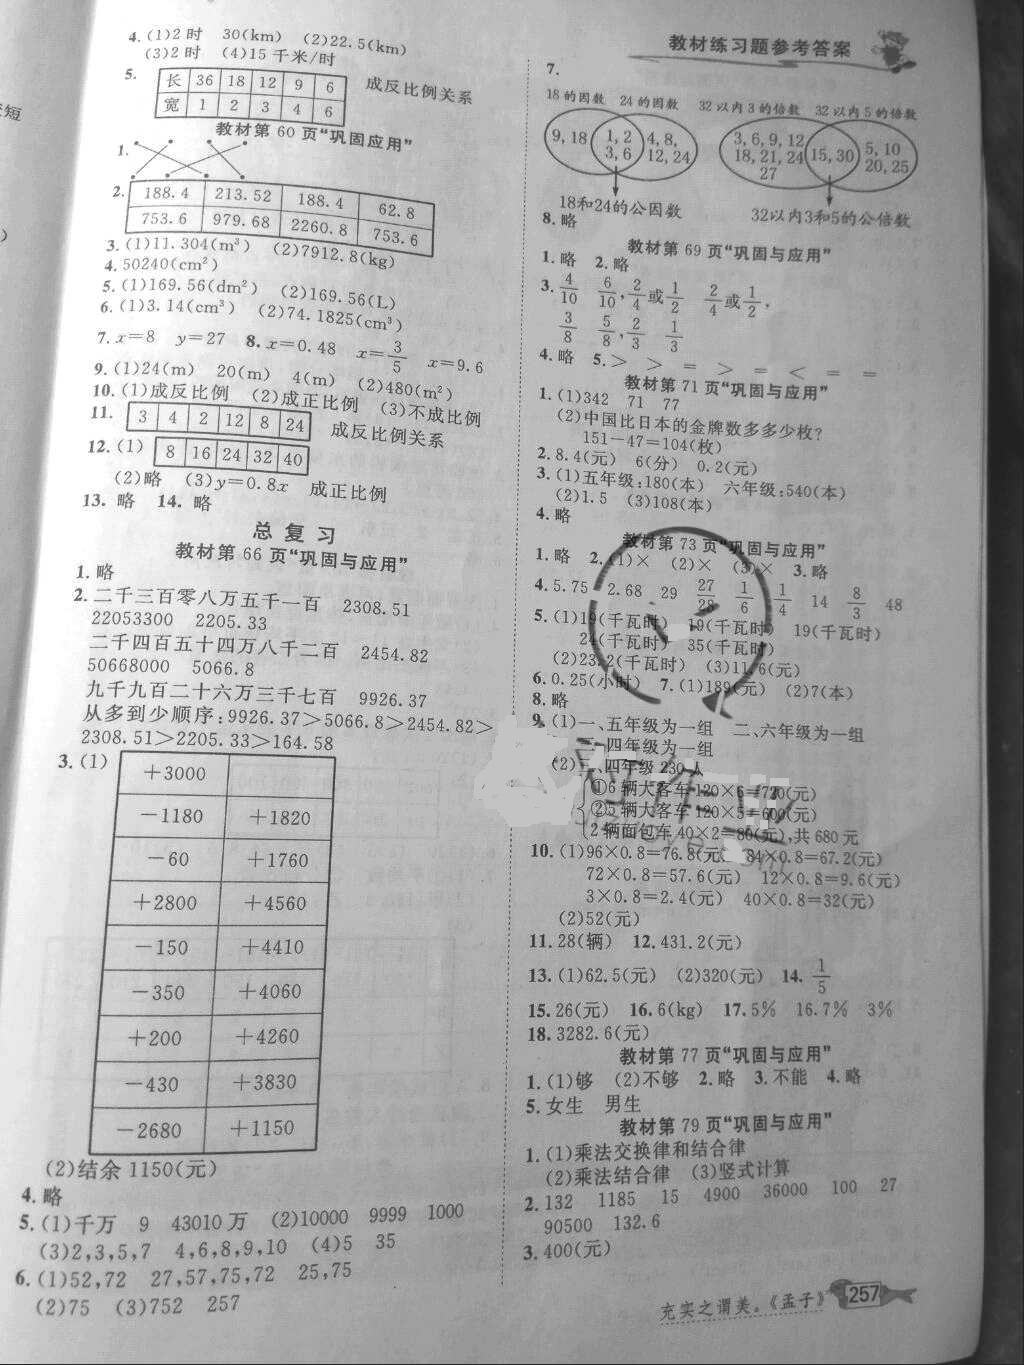 4.(1)2时 30(km) (2)22.5(km)
(3)2时 (4)15千米/时
5. 长 36 18 12 9 6 成反比例关系
宽 1 2 3 4 6
教材第60页“巩固应用”
1.
2. 188.4 213.52 188.4 62.8
753.6 979.68 2260.8 753.6
3.(1)11.304(m³) (2)7912.8(kg)
4.50240(cm²)
5.(1)169.56(dm²) (2)169.56(L)
6.(1)3.14(cm³) (2)74.1825(cm³)
7.x=8 y=27 8.x=0.48 x=3/5 x=9.6
9.(1)24(m) 20(m) 4(m) (2)480(m²)
10.(1)成反比例 (2)成正比例 (3)不成比例
11. 3 4 2 12 8 24 成反比例关系
12.(1) 8 16 24 32 40
(2)略 (3)y=0.8x 成正比例
13.略 14.略
总复习
教材第66页“巩固与应用”
1.略
2.二千三百零八万五千一百 2308.51
22053300 2205.33
二千四百五十四万八千二百 2454.82
50668000 5066.8
九千九百二十六万三千七百 9926.37
从多到少顺序:9926.37>5066.8>2454.82>
2308.51>2205.33>164.58
3.(1) +3000
−1180 +1820
−60 +1760
+2800 +4560
−150 +4410
−350 +4060
+200 +4260
−430 +3830
−2680 +1150
(2)结余1150(元)
4.略
5.(1)千万 9 43010万 (2)10000 9999 1000
(3)2,3,5,7 4,6,8,9,10 (4)5 35
6.(1)52,72 27,57,75,72 25,75
(2)75 (3)752 257
教材练习题参考答案
7.
18的因数 24的因数 32以内3的倍数 32以内5的倍数
9,18 1,2 4,8, 3,6,9,12 15,30 5,10
3,6 12,24 18,21,24 20,25
27
18和24的公因数 32以内3和5的公倍数
8.略
教材第69页“巩固与应用”
1.略 2.略
3. 4/10 6/10,2/4或1/2 2/4或1/2,
3/8 5/8,2/3 1/3
4.略 5.> > = > = < = =
教材第71页“巩固与应用”
1.(1)342 71 77
(2)中国比日本的金牌数多多少枚?
151−47=104(枚)
2.8.4(元) 6(分) 0.2(元)
3.(1)五年级:180(本) 六年级:540(本)
(2)1.5 (3)108(本)
4.略
教材第73页“巩固与应用”
1.略 2.(1)× (2)× (3)× 3.略
4.5.75 2.68 29 27/28 1/6 1/4 14 8/3 48
5.(1)19(千瓦时) 19(千瓦时) 19(千瓦时)
24(千瓦时) 35(千瓦时)
(2)23.2(千瓦时) (3)11.6(元)
6.0.25(小时) 7.(1)189(元) (2)7(本)
8.略
9.(1)一、五年级为一组 二、六年级为一组
三、四年级为一组
(2)三、四年级230人
①6辆大客车120×6=720(元)
②5辆大客车120×5=600(元)
2辆面包车40×2=80(元),共680元
10.(1)96×0.8=76.8(元) 84×0.8=67.2(元)
72×0.8=57.6(元) 12×0.8=9.6(元)
3×0.8=2.4(元) 40×0.8=32(元)
(2)52(元)
11.28(辆) 12.431.2(元)
13.(1)62.5(元) (2)320(元) 14. 1/5
15.26(元) 16.6(kg) 17.5% 16.7% 3%
18.3282.6(元)
教材第77页“巩固与应用”
1.(1)够 (2)不够 2.略 3.不能 4.略
5.女生 男生
教材第79页“巩固与应用”
1.(1)乘法交换律和结合律
(2)乘法结合律 (3)竖式计算
2.132 1185 15 4900 36000 100 27
90500 132.6
3.400(元)
充实之谓美。《孟子》 257